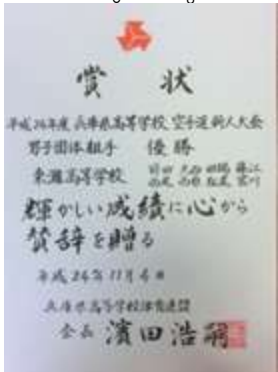 賞状
平成24年度 兵庫県高等学校 空手道新人大会
男子団体組手 優勝
東灘高等学校
輝かしい成績に心から
賛辞を贈る
平成24年11月4日
兵庫県高等学校体育連盟
会長 濱田浩嗣